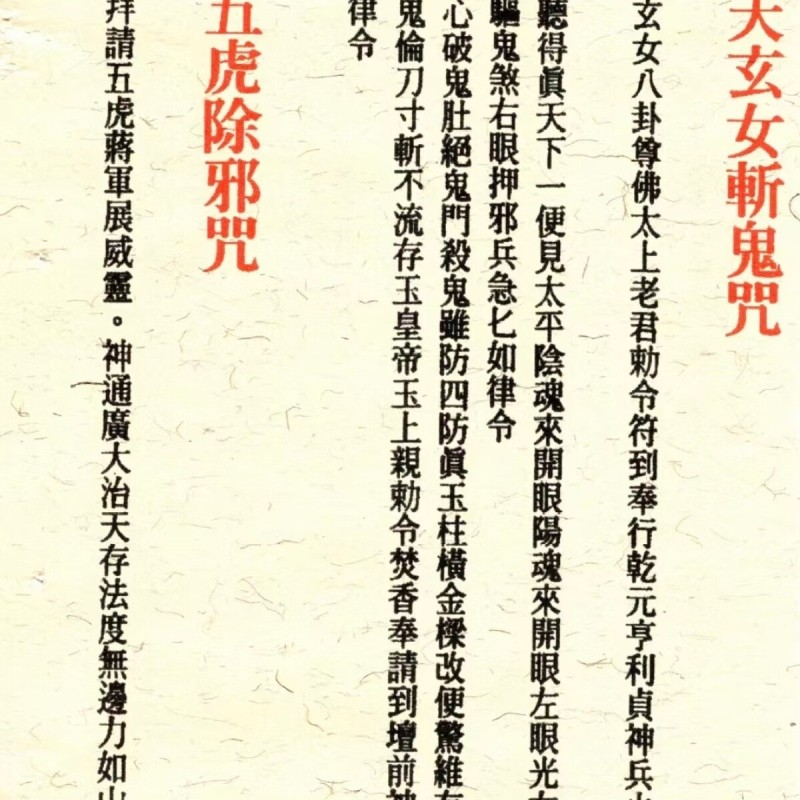 天玄女斬鬼咒
玄女八卦尊佛太上老君勅令符到奉行乾元亨利貞神兵火
聽得眞天下一便見太平陰魂來開眼陽魂來開眼左眼光右
驅鬼煞右眼押邪兵急匕如律令
心破鬼肚絕鬼門殺鬼雖防四防眞玉柱橫金樑改便驚維
鬼倫刀寸斬不流存玉皇帝玉上親勅令焚香奉請到壇前神
律令
五虎除邪咒
拜請五虎蔣軍展威靈。神通廣大治天存法度無邊力如山